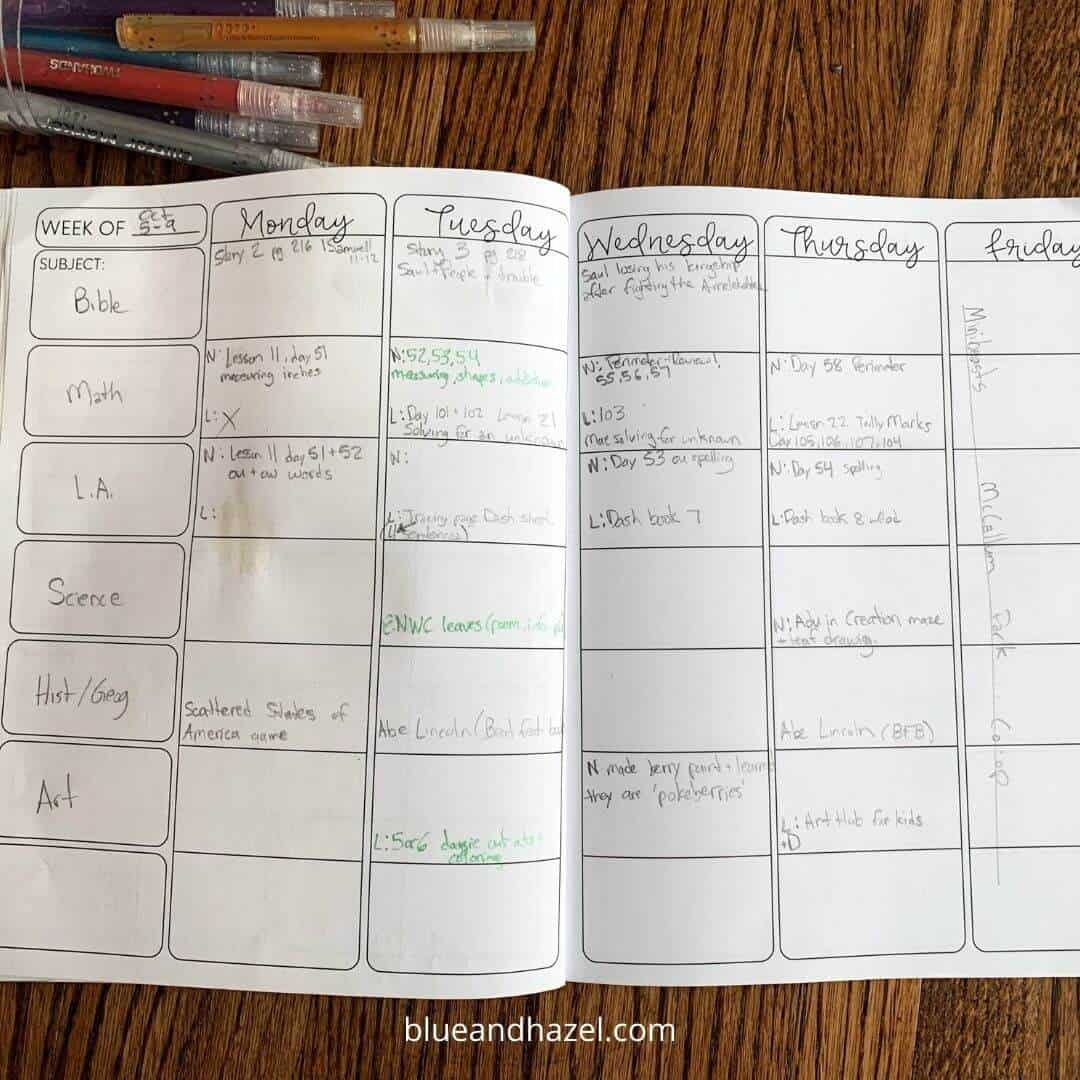 WEEK OF Oct 5-9
Monday
Tuesday
Wednesday
Thursday
friday
SUBJECT:
Bible
Story 2 pg 216 1Samuel
11-12
Story 3 pg 218
Saul + People trouble
Saul losing his kingship
after fighting the
Math
N: Lesson 11, day 51
measuring inches
L: X
N: 52, 53, 54
measuring, shapes,
L: Day 101 + 102 Lesson 21
Solving for an unknown
N: Perimeter
55, 56, 57
L: 103
More solving for unknown
N: Day 58 Perimeter
L: Lesson 22 Tally Marks
Day 105, 106, 107, 104
L.A.
N: Lesson 11 day 51 + 52
ou + ow words
L:
N:
L: Tracing page Dash
(4 sentences)
N: Day 53 ou spelling
L: Dash book 7
N: Day 54 spelling
L: Dash book 8
Science
NWC leaves (poem,
N: Adv in Creation maze
+ leaf drawing
Hist/Geog
Scattered States of
America game
Abe Lincoln (
Abe Lincoln (BFB)
Art
L: 5 or 6 doggie cut outs +
coloring
N made berry paint + learned
they are 'pokeberries'
L: Art Hub for kids
+D
Minibeasts McCallum Park Co-op
blueandhazel.com